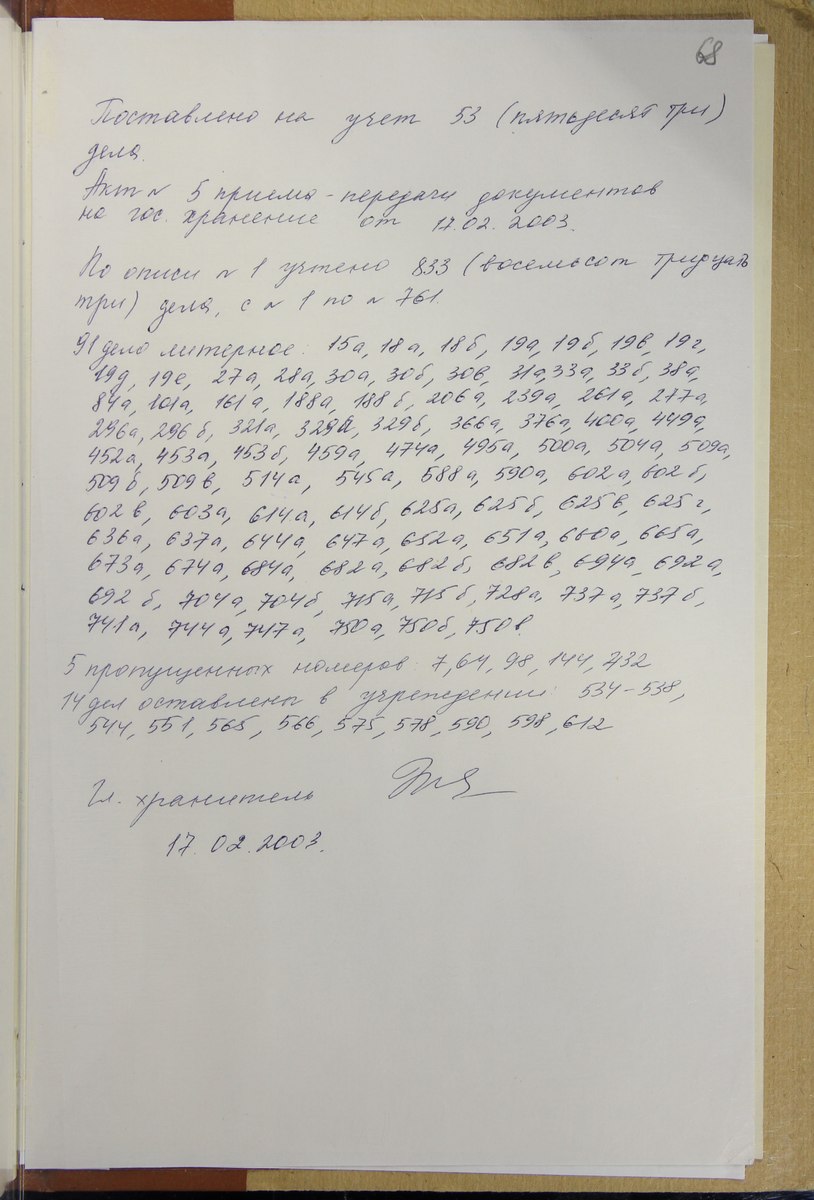 68
Поставлено на учет 53 (пятьдесят три)
дела.
Акт № 5 приема-передачи документов
на гос. хранение от 17.02.2003.
По описи № 1 учтено 833 (восемьсот тридцать
три) дела, с № 1 по № 761.
91 дело литерное: 15а, 18а, 18б, 19а, 19б, 19в, 19г,
19д, 19е, 27а, 28а, 30а, 30б, 30в, 31а, 33а, 33б, 38а,
84а, 101а, 161а, 188а, 188б, 206а, 239а, 261а, 277а,
296а, 296б, 321а, 329а, 329б, 366а, 376а, 400а, 449а,
452а, 453а, 453б, 459а, 474а, 495а, 500а, 504а, 509а,
509б, 509в, 514а, 545а, 588а, 590а, 602а, 602б,
602в, 603а, 614а, 614б, 625а, 625б, 625в, 625г,
636а, 637а, 644а, 647а, 652а, 651а, 660а, 665а,
673а, 674а, 684а, 682а, 682б, 682в, 694а, 692а,
692б, 704а, 704б, 715а, 715б, 728а, 737а, 737б,
741а, 744а, 747а, 750а, 750б, 750в.
5 пропущенных номеров: 7, 64, 98, 144, 432
14 дел оставлены в учреждении: 534-538,
544, 551, 565, 566, 575, 578, 590, 598, 612
Гл. хранитель
17.02.2003.